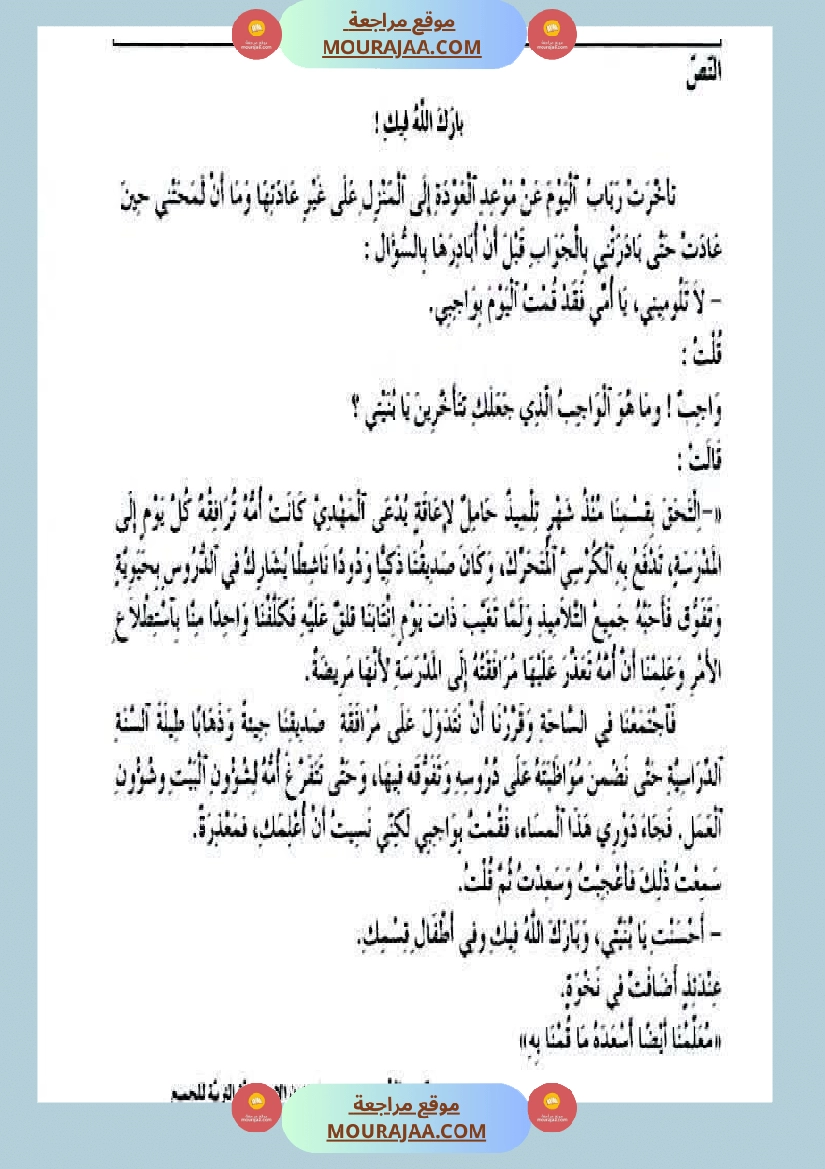 موقع مراجعة
MOURAJAA.COM
النّصّ
بَارَكَ اللَّهُ فِيكِ !
تَأَخَّرَتْ رَبَابُ ٱلْيَوْمَ عَنْ مَوْعِدِ ٱلْعَوْدَةِ إِلَى ٱلْمَنْزِلِ عَلَى غَيْرِ عَادَتِهَا وَمَا أَنْ لَمَحَتْنِي حِينَ
عَادَتْ حَتَّى بَادَرَتْنِي بِالْجَوَابِ قَبْلَ أَنْ أُبَادِرَهَا بِالسُّؤَالِ :
– لاَ تَلُومِينِي، يَا أُمِّي فَقَدْ قُمْتُ ٱلْيَوْمَ بِوَاجِبِي.
قُلْتُ :
وَاجِبٌ ! ومَا هُوَ ٱلْوَاجِبُ الَّذِي جَعَلَكِ تَتَأَخَّرِينَ يَا بُنَيَّتِي ؟
قَالَتْ :
«–اِلْتَحَقَ بِقِسْمِنَا مُنْذُ شَهْرٍ تِلْمِيذٌ حَامِلٌ لإِعَاقَةٍ يُدْعَى ٱلْمَهْدِيْ كَانَتْ أُمُّهُ تُرَافِقُهُ كُلَّ يَوْمٍ إِلَى
المَدْرَسَةِ، تَدْفَعُ بِهِ ٱلْكُرْسِيَّ ٱلْمُتَحَرِّكَ، وَكَانَ صَدِيقُنَا ذَكِيًّا وَدُودًا نَاشِطًا يُشَارِكُ فِي ٱلدُّرُوسِ بِحَيَوِيَّةٍ
وَتَفَوُّقٍ فَأَحَبَّهُ جَمِيعُ التَّلاَمِيذِ وَلَمَّا تَغَيَّبَ ذَاتَ يَوْمٍ اِنْتَابَنَا قَلَقٌ عَلَيْهِ فَكَلَّفْنَا وَاحِدًا مِنَّا بِٱسْتِطْلاَعِ
الأَمْرِ وَعَلِمْنَا أَنَّ أُمَّهُ تَعَذَّرَ عَلَيْهَا مُرَافَقَتُهُ إِلَى المَدْرَسَةِ لأَنَّهَا مَرِيضَةٌ.
فَٱجْتَمَعْنَا فِي السَّاحَةِ وَقَرَّرْنَا أَنْ نَتَدَاوَلَ عَلَى مُرَافَقَةِ صَدِيقِنَا جِيئَةً وَذَهَابًا طِيلَةَ ٱلسَّنَةِ
ٱلدِّرَاسِيَّةِ حَتَّى نَضْمَنَ مُوَاظَبَتَهُ عَلَى دُرُوسِهِ وَتَفَوُّقَه فِيهَا، وَحَتَّى تَتَفَرَّغَ أُمُّهُ لِشُؤُونِ ٱلْبَيْتِ وشُؤُونِ
ٱلْعَمَلِ. فَجَاءَ دَوْرِي هَذَا ٱلْمسَاء، فَقُمْتُ بِوَاجِبِي لَكِنِّي نَسِيتُ أَنْ أُعْلِمَكِ، فَمَعْذِرَةً.
سَمِعْتُ ذَلِكَ فأعْجِبْتُ وَسَعِدْتُ ثُمَّ قُلْتُ.
– أَحْسَنْتِ يَا بُنَيَّتِي، وَبَارَكَ اللَّهُ فِيكِ وفِي أَطْفَالِ قِسْمِكِ.
عِنْدَئِذٍ أَضَافَتْ فِي نَخْوَةٍ.
«مُعَلِّمُنَا أَيْضًا أَسْعَدَهُ مَا قُمْنَا بِهِ»
التربيّة للجميع
موقع مراجعة
MOURAJAA.COM